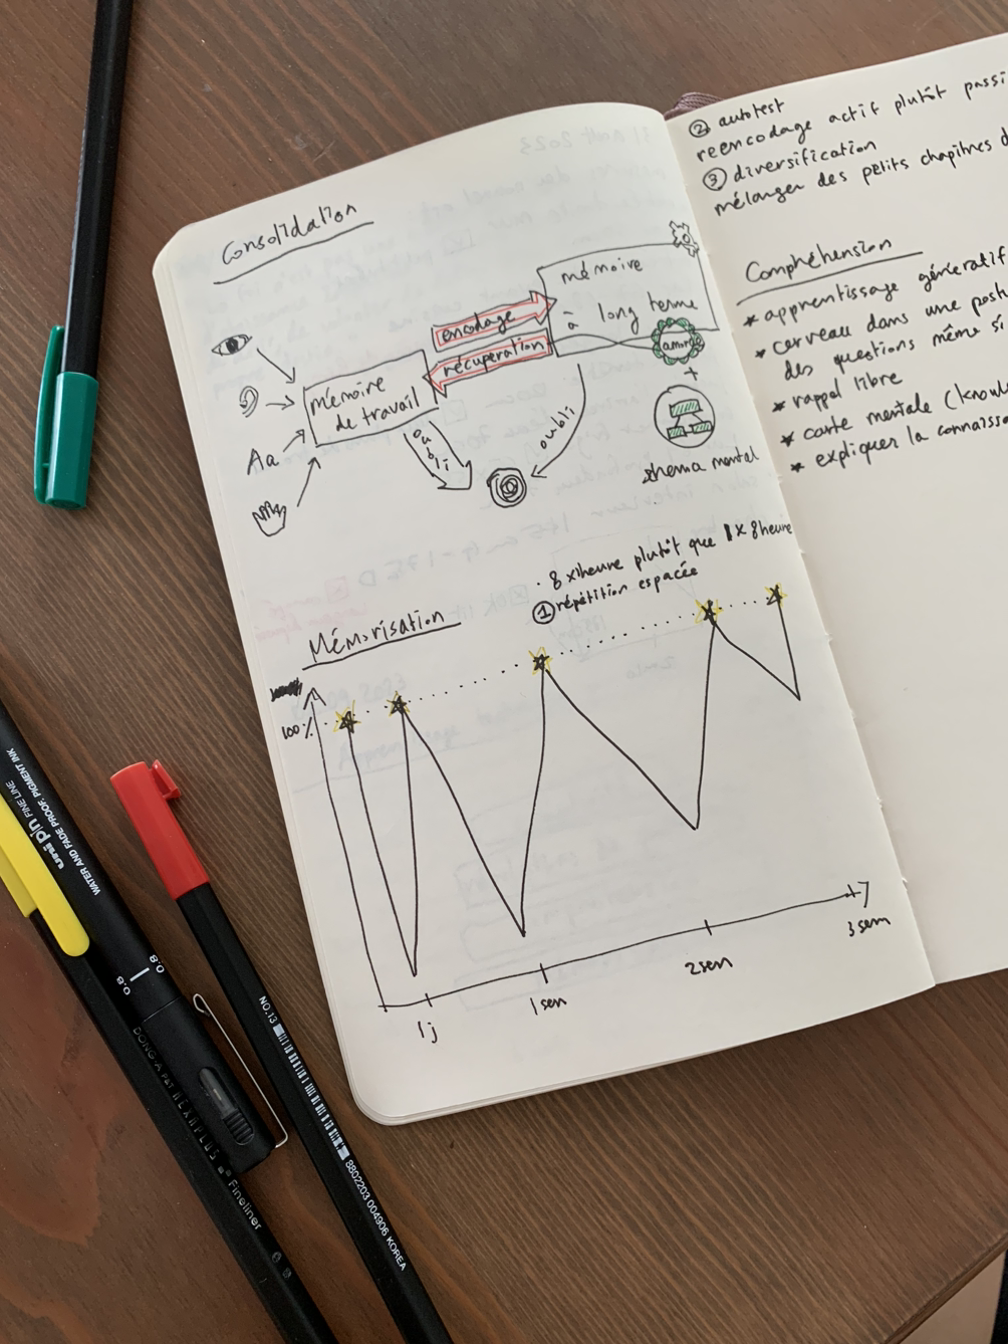 Consolidation
mémoire
à long terme
encodage
récupération
Mémoire
de travail
Aa
oubli
oubli
amorce
+
shema mental
Mémorisation
· 8 x1heure plutôt que 1 x 8heure
① répétition espacée
100%
1j
1sem
2sem
3sem
② autotest
reencodage actif plutôt passi
③ diversification
mélanger des petits chapitres d
Compréhension
* apprentissage génératif
* cerveau dans une post
des questions même si
* rappel libre
* carte mentale (knowl
* expliquer la connaiss
uni pin FINE LINE
WATER AND FADE PROOF, PIGMENT INK
0.8
0.8
DONG-A
Fineliner
NO.13
8802203 004906 KOREA